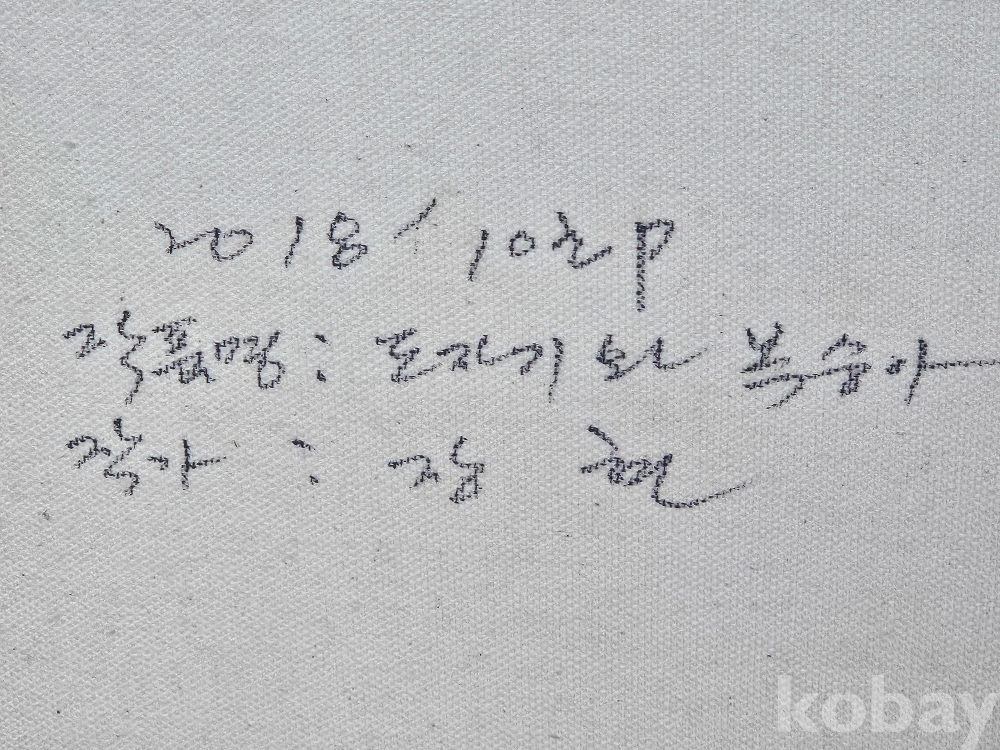 2018 / 10호P
작품명: 도자기와 복숭아
작가 : 강 현
kobay